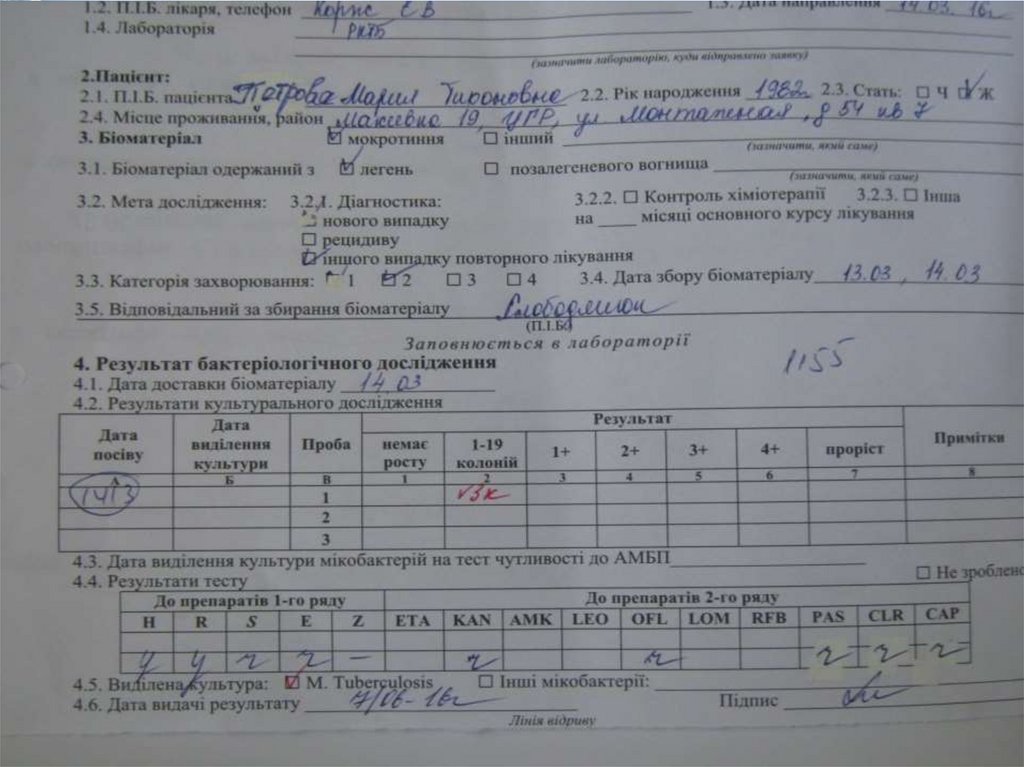 1.2. П.І.Б. лікаря, телефон Корпс Є В 1.3. Дата направлення 14.03. 16г
1.4. Лабораторія РКТБ
(зазначити лабораторію, куди відправлено заявку)
2.Пацієнт:
2.1. П.І.Б. пацієнта Петрова Мария 2.2. Рік народження 1982 2.3. Стать: ☐ Ч ☑ Ж
2.4. Місце проживання, район Макеевка 19, ул Монтажная, д 54 кв 7
3. Біоматеріал ☑ мокротиння ☐ інший
(зазначити, який саме)
3.1. Біоматеріал одержаний з ☑ легень ☐ позалегеневого вогнища
(зазначити, який саме)
3.2. Мета дослідження: 3.2.1. Діагностика: 3.2.2. ☐ Контроль хіміотерапії 3.2.3. ☐ Інша
☐ нового випадку на ____ місяці основного курсу лікування
☐ рецидиву
☑ іншого випадку повторного лікування
3.3. Категорія захворювання: ☐ 1 ☑ 2 ☐ 3 ☐ 4 3.4. Дата збору біоматеріалу 13.03, 14.03
3.5. Відповідальний за збирання біоматеріалу
(П.І.Б.)
Заповнюється в лабораторії
4. Результат бактеріологічного дослідження 1155
4.1. Дата доставки біоматеріалу 14 03
4.2. Результати культурального дослідження
Дата посіву Дата виділення культури Проба Результат Примітки
немає росту 1-19 колоній 1+ 2+ 3+ 4+ проріст
А Б В 1 2 3 4 5 6 7 8
1413 1 √3к
2
3
4.3. Дата виділення культури мікобактерій на тест чутливості до АМБП
4.4. Результати тесту ☐ Не зроблено
До препаратів 1-го ряду До препаратів 2-го ряду
H R S E Z ETA KAN AMK LEO OFL LOM RFB PAS CLR CAP
у у ч ч — ч ч ч ч ч
4.5. Виділена культура: ☑ M. Tuberculosis ☐ Інші мікобактерії:
4.6. Дата видачі результату 7/06-16г Підпис
Лінія відриву